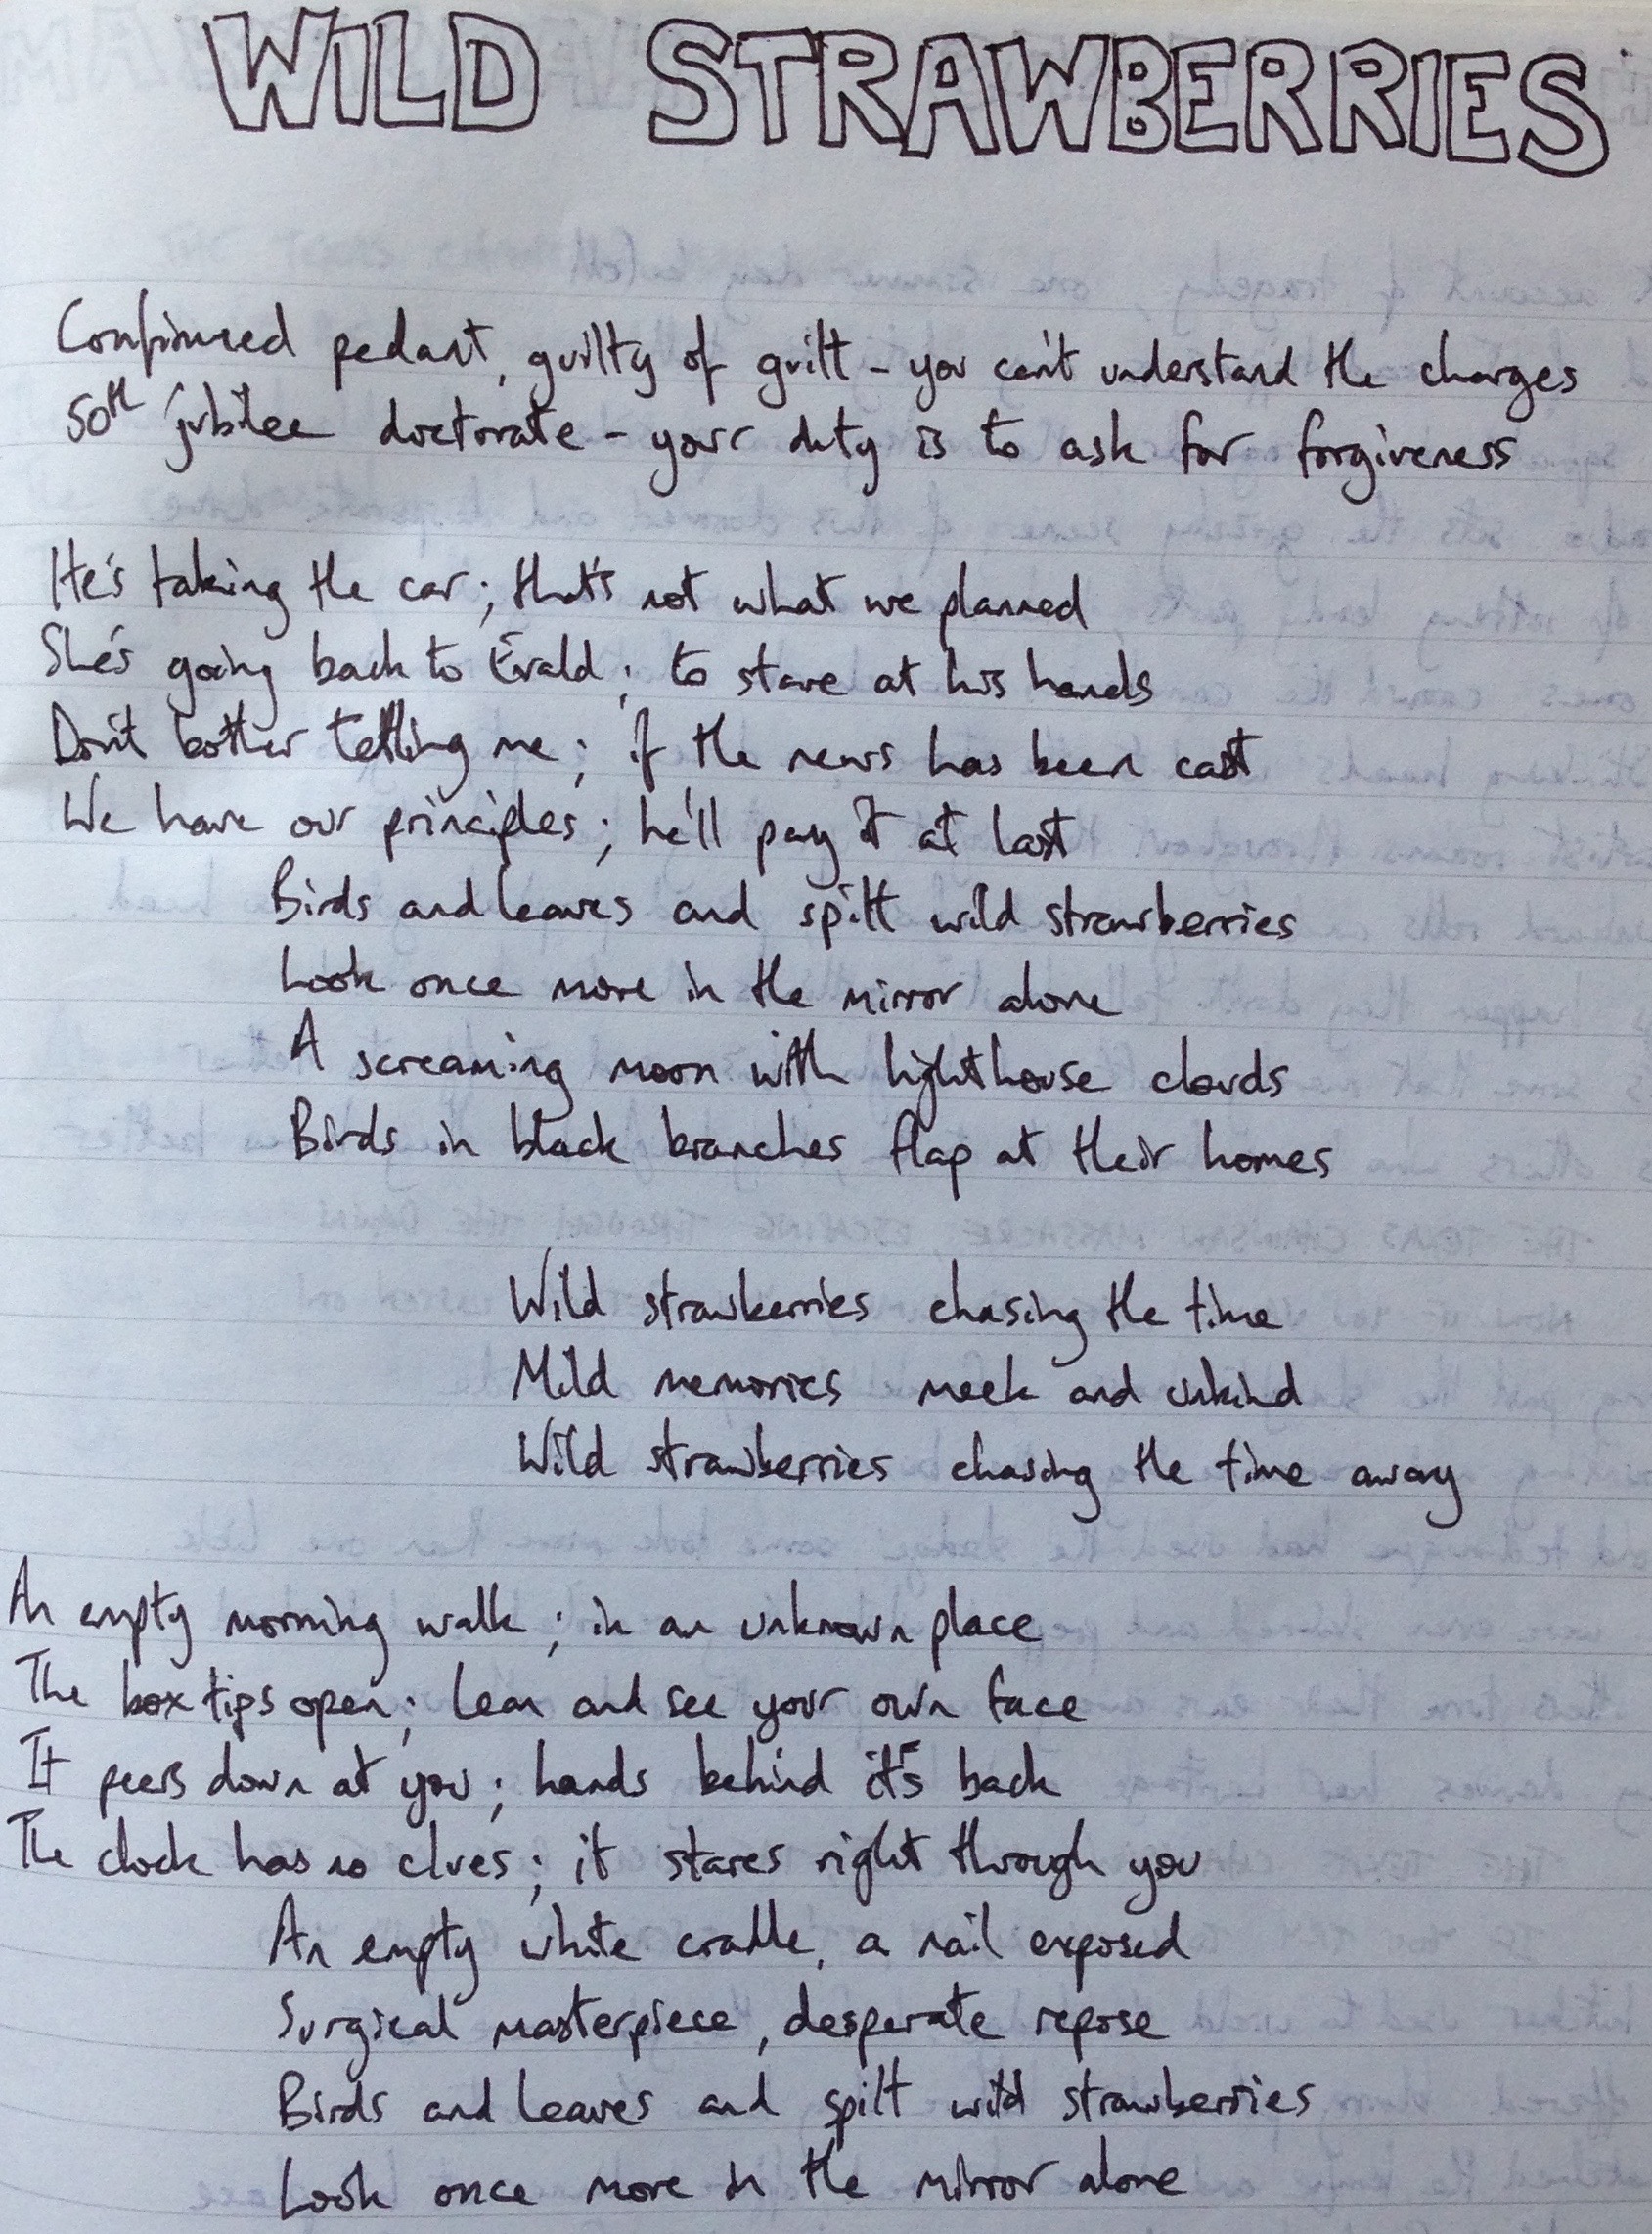 WILD STRAWBERRIES
Confirmed pedant, guilty of guilt - you can't understand the charges
50th jubilee doctorate - your duty is to ask for forgiveness
He's taking the car; that's not what we planned
She's going back to Evald; to stare at his hands
Don't bother telling me; if the news has been cast
We have our principles; he'll pay it at last
Birds and leaves and spilt wild strawberries
Look once more in the mirror alone
A screaming moon with lighthouse clouds
Birds in black branches flap at their homes
Wild strawberries chasing the time
Mild memories meek and unkind
Wild strawberries chasing the time away
An empty morning walk; in an unknown place
The box tips open; lean and see your own face
It peers down at you; hands behind it's back
The clock has no clues; it stares right through you
An empty white cradle, a nail exposed
Surgical masterpiece, desperate repose
Birds and leaves and spilt wild strawberries
Look once more in the mirror alone